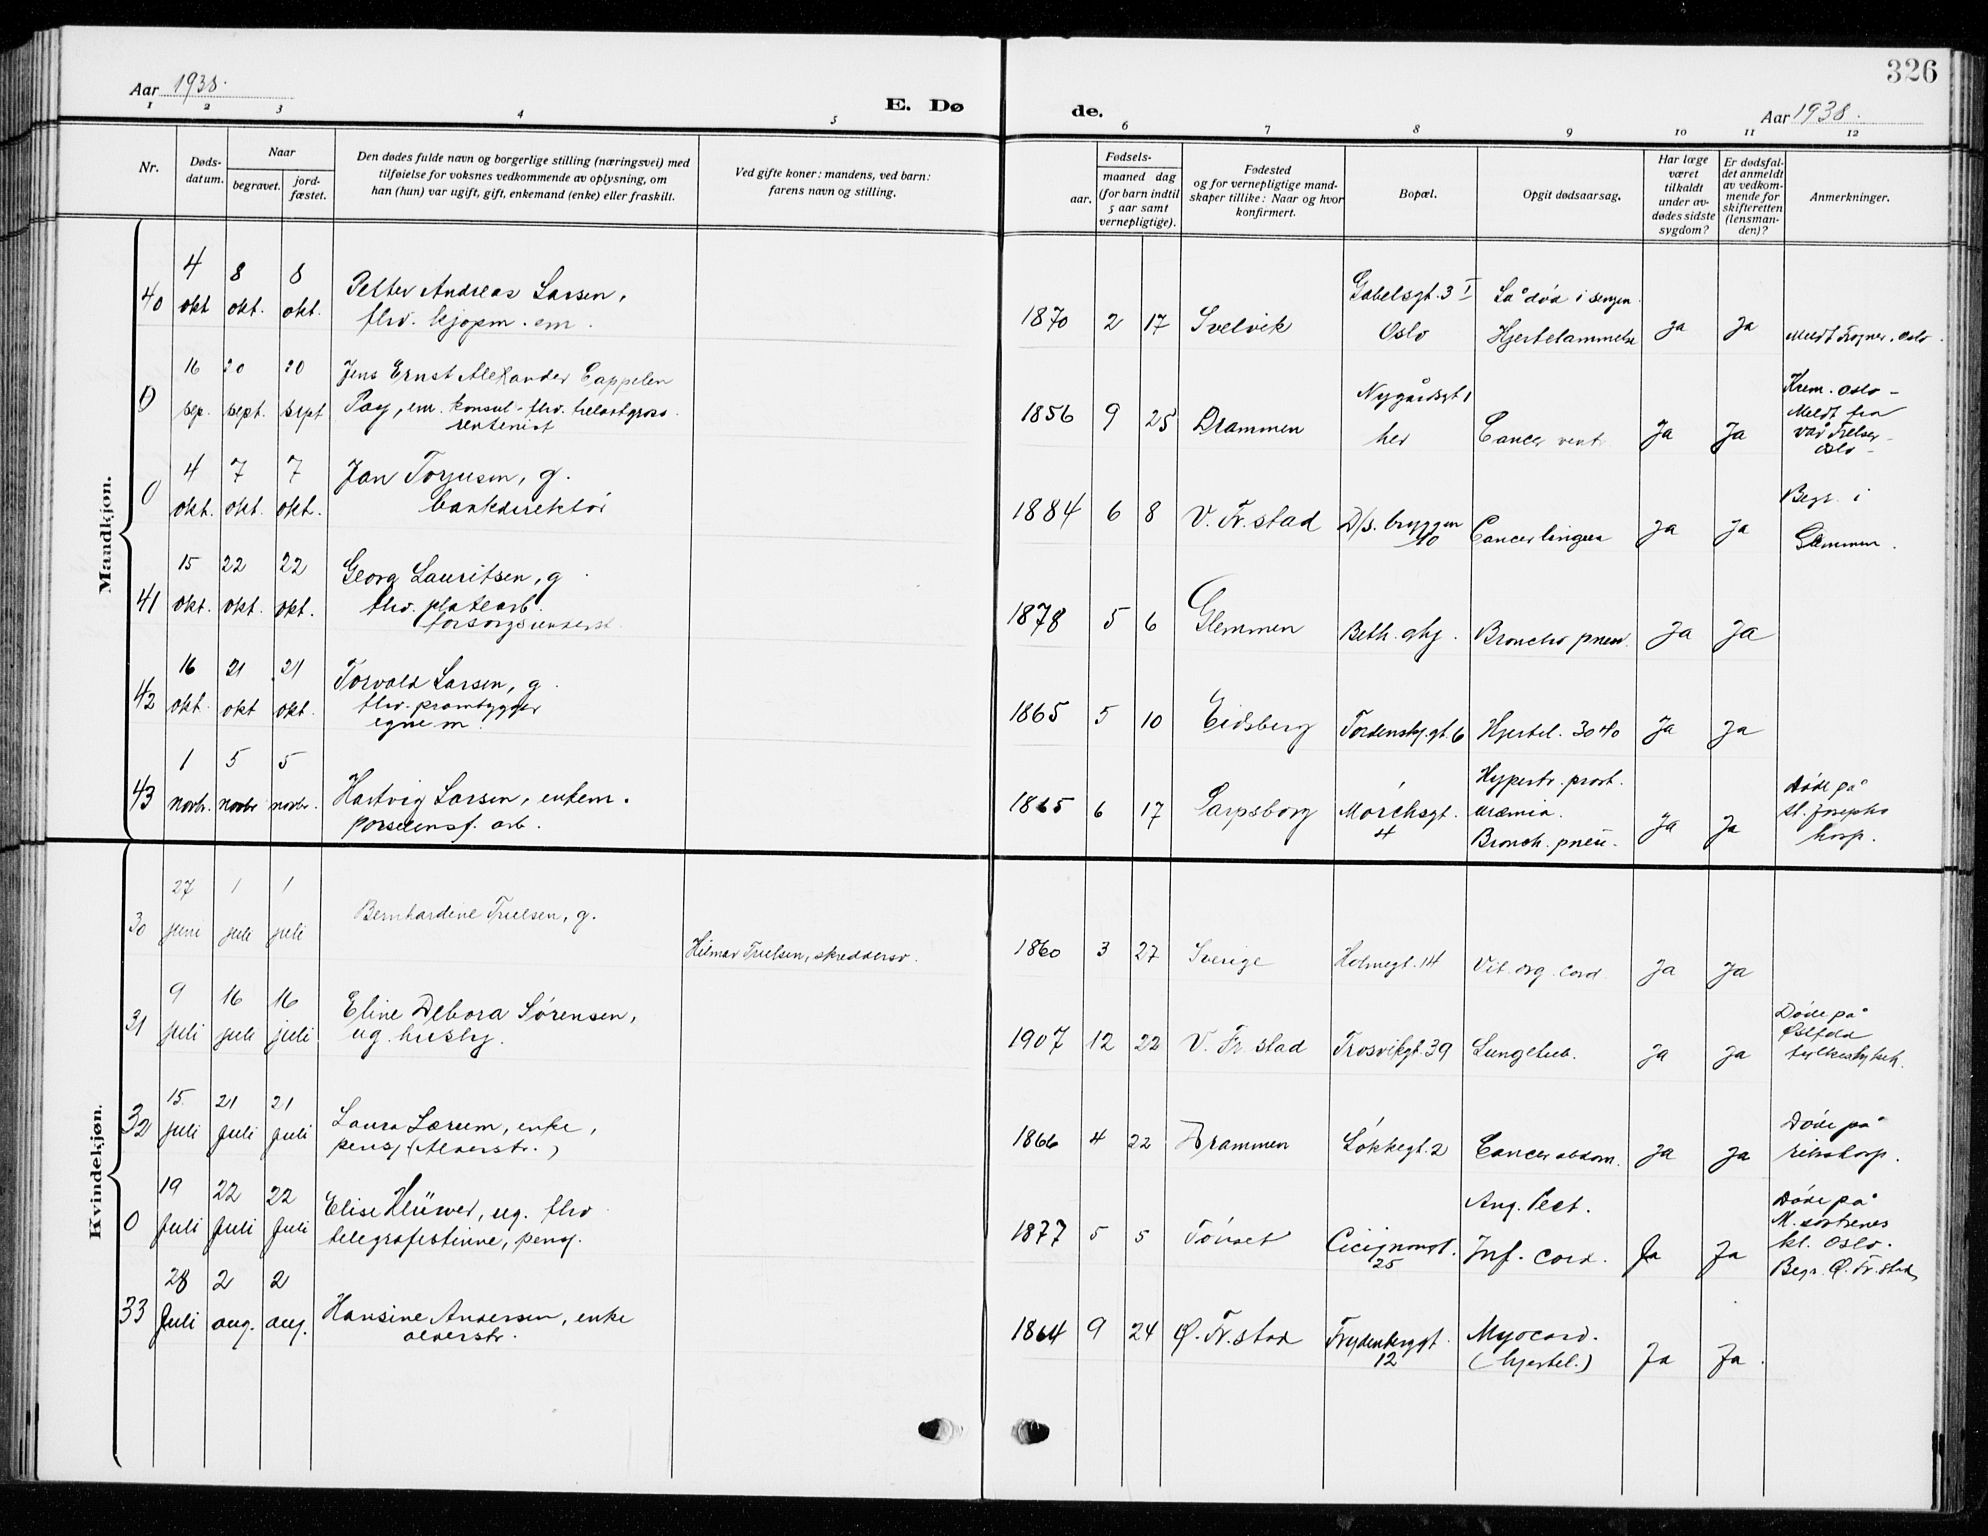 326
Aar 1938. E. Dø de. Aar 1938.
1 2 3 4 5 6 7 8 9 10 11 12
Nr.
Døds-
datum.
Naar
begravet.
jord-
fæstet.
Den dødes fulde navn og borgerlige stilling (næringsvei) med
tilføielse for voksnes vedkommende av oplysning, om
han (hun) var ugift, gift, enkemand (enke) eller fraskilt.
Ved gifte koner: mandens, ved barn:
farens navn og stilling.
Fødsels-
aar.
maaned dag
(for barn indtil
5 aar samt
vernepligtige).
Fødested
og for vernepligtige mand-
skaper tillike: Naar og hvor
konfirmert.
Bopæl.
Opgit dødsaarsag.
Har læge
været
tilkaldt
under av-
dødes sidste
sygdom?
Er dødsfal-
det anmeldt
av vedkom-
mende for
skifteretten
(lensman-
den)?
Anmerkninger.
Mandkjøn.
40
4 8 8
okt okt. okt.
Petter Andreas Larsen,
fhv. kjøpm. em.
1870 2 17 Svelvik
Gabelsgt. 3 I
Oslo
Lå død i sengen.
Hjertelammelse
Ja Ja
Meldt Frogner, Oslo.
0
16 20 20
sep. sept. sept
Jens Ernst Alexander Cappelen
Pay, em. konsul - fhv. trelastgross.
rentenist
1856 9 25 Drammen
Nygårdsgt 1
her
Cancer ventr.
Ja Ja
Krem. Oslo -
Meldt fra
Vår Frelser
Oslo -
0
4 7 7
okt. okt. okt.
Jan Torjusen, g.
bankdirektør
1884 6 8 V. Fr.stad
D/s. bryggen
10
Cancer lingua
Ja Ja
Begr. i
Glemmen.
41
15 22 22
okt. okt. okt.
Georg Lauritsen, g.
fhv. platearb.
forsorgsunderst.
1878 5 6 Glemmen
Beth. ghj.
Broncho pneu.
Ja Ja
42
16 21 21
okt. okt okt.
Torvald Larsen, g.
fhv. prambygger
egne m.
1865 5 10 Eidsberg
Tordenskj.gt. 6
Hjertel. 30 40
Ja Ja
43
1 5 5
novbr. novbr novbr.
Hartvig Larsen, enkem.
porselensf. arb.
1865 6 17 Sarpsborg
Mørchsgt.
4
Hypertr. prost.
Uræmia.
Bronch. pneu.
Ja Ja
Døde på
St. Josephs
hosp.
Kvindekjøn.
30
27 1 1
juni juli juli
Bernhardine Truelsen, g.
Hilmar Truelsen, skreddersv.
1860 3 27 Sverige
Holmegt. 14
Vit. org. cord.
Ja Ja
31
9 16 16
juli juli juli
Eline Debora Sørensen,
ug. husby.
1907 12 22 V. Fr.stad
Trosvikgt. 39
Lungetub.
Ja Ja
Døde på
Østfold
fylkessykeh.
32
15. 21 21
juli juli juli
Laura Lærum, enke,
pensj (Alderstr.)
1866 4 22 Drammen
Løkkegt. 2
Cancer abdom.
Ja Ja
Døde på
rikshosp.
0
19 22 22
Juli Juli Juli
Elise Klüwer, ug. fhv.
telegrafistinne, pensj.
1877 5 5 Tönset
Cicignongt.
25
Ang. Pect.
Inf. cord.
Ja Ja
Døde på
M. søstrenes
kl. Oslo.
Begr. Ø. Fr.stad
33
28 2 2
Juli aug. aug.
Hansine Andersen, enke
alderstr.
1864 9 24 Ø. Fr.stad
Frydenberggt.
12
Myocard.
(hjertel.)
Ja Ja.